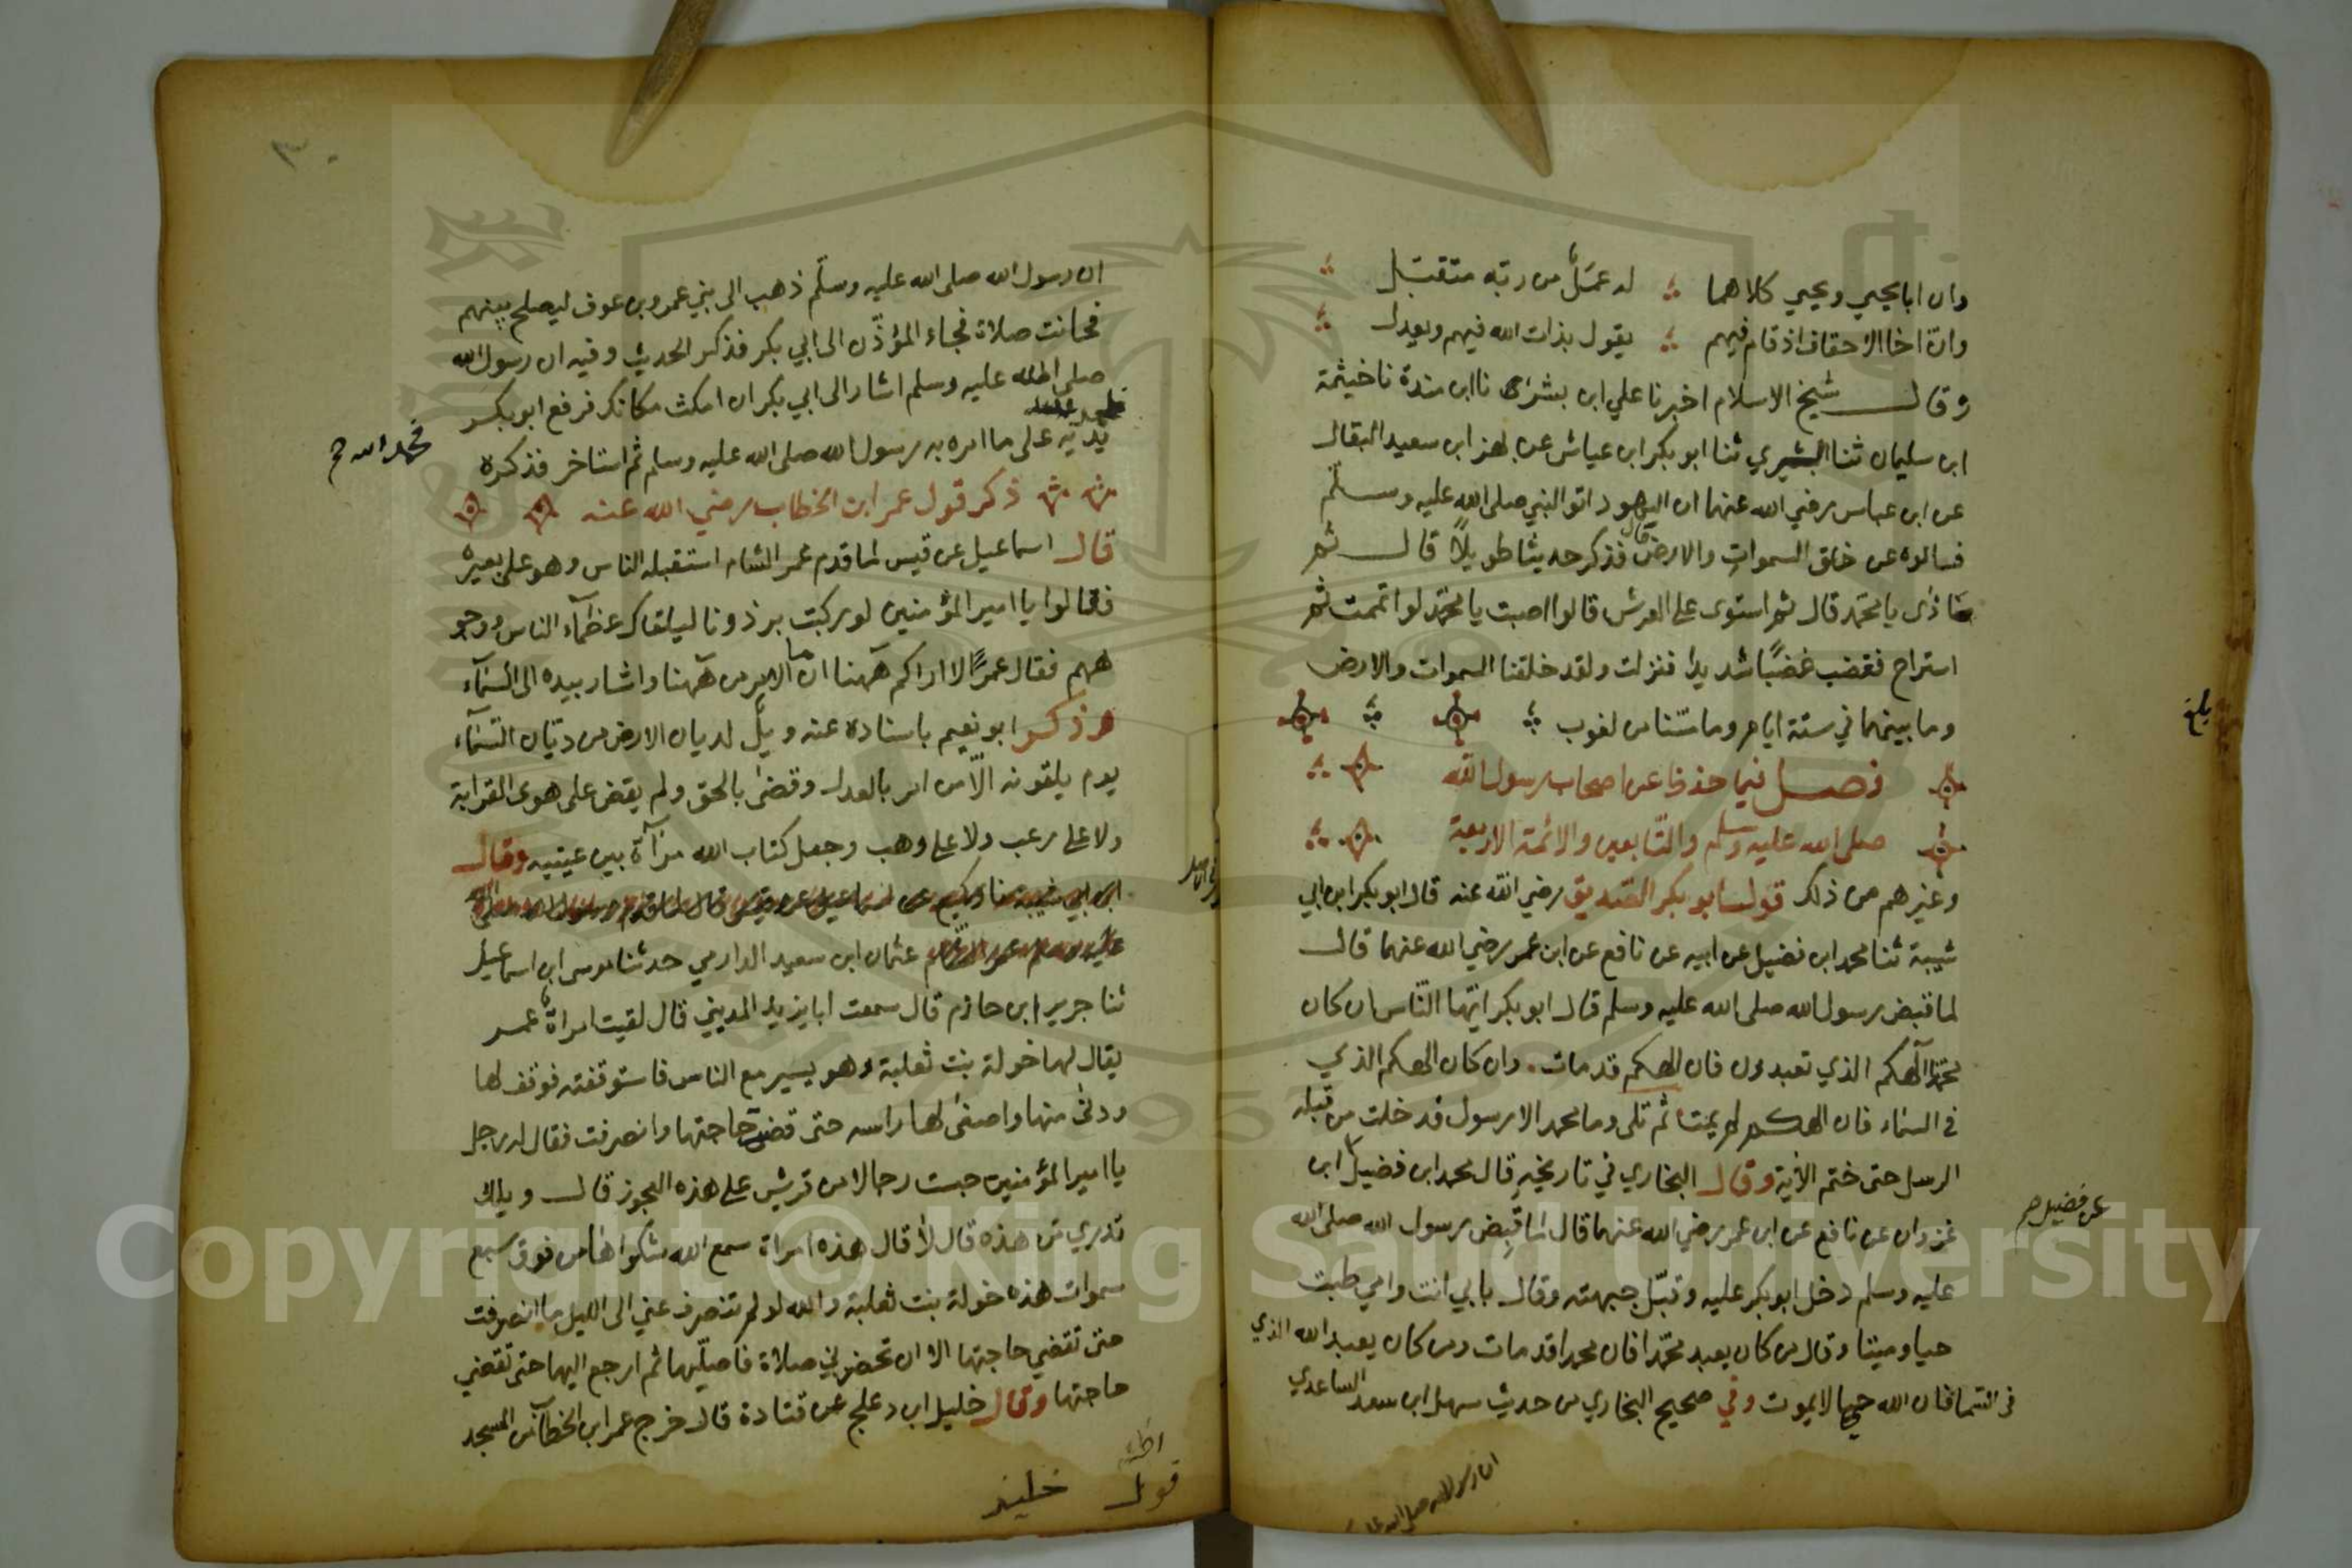 وان ابا يحيي ويحيي كلاهما له عمل من ربه متقبل
وان اخا الاحقاف اذ قام فيهم يقول بذات الله فيهم ويعدل
وقال شيخ الاسلام اخبرنا علي ابن بشران نا ابن مندة نا خيثمة
ابن سليمان ثنا ثنا ابو بكر ابن عياش عن ابن سعيد البقال
عن ابن عباس رضي الله عنهما ان اليهود اتو النبي صلى الله عليه وسلم
فسالوه عن خلق السموات والارض فذكر حديثا طويلاً قال قال ثم
ماذا يا محمد قال ثم استوى على العرش قالوا اصبت يا محمد لو اتممت ثم
استراح فغضب غضبًا شديدًا فنزلت ولقد خلقنا السموات والارض
وما بينهما في ستة ايام وما مسّنا من لغوب
فصل فيما عن اصحاب رسول الله
صلى الله عليه وسلم والتابعين والائمة الاربعة
وغيرهم من ذلك قول ابو بكر الصديق رضي الله عنه قال ابو بكر ابن ابي
شيبة ثنا محمد ابن فضيل عن ابيه عن نافع عن ابن عمر رضي الله عنهما قال
لما قبض رسول الله صلى الله عليه وسلم قال ابو بكر ايّها النّاس ان كان
محمدًا آلهكم الذي تعبدون فان الهكم قد مات وان كان الهكم الذي
في السماء فان الهكم لم يمت ثم تلى وما محمد الا رسول قد خلت من قبله
الرسل حتى ختم الآية وقال البخاري في تاريخه قال محمد ابن فضيل ابن
عن فضيل
غزوان عن نافع عن ابن عمر رضي الله عنهما قال لما قبض رسول الله صلى الله
عليه وسلم دخل ابو بكر عليه وقبّل جبهته وقال بابي انت وامي طبت
حيا وميتا وقال من كان يعبد محمّدا فان محمدا قد مات ومن كان يعبد الله الذي
في السما فان الله حي لا يموت وفي صحيح البخاري من حديث سهل ابن سعد الساعدي
ان رسول الله صلى الله
بلغ
ان رسول الله صلى الله عليه وسلّم ذهب الى بني عمرو بن عوف ليصلح بينهم
فحانت صلاة فجاء المؤذّن الى ابي بكر فذكر الحديث وفيه ان رسول الله
صلى الله عليه وسلم اشار الى ابي بكر ان امكث مكانك فرفع ابو بكر
فحمد الله
يديه على ما امره به رسول الله صلى الله عليه وسلم ثم استاخر فذكره
ذكر قول عمر ابن الخطاب رضي الله عنه
قال اسماعيل عن قيس لما قدم عمر الشام استقبله الناس وهو على بعيره
فقالوا يا امير المؤمنين لو ركبت برذونا ليلقاك عظماء الناس ووجو
ههم فقال عمر الا اراكم هٓهنا انما الامر من هٓهنا واشار بيده الى السماء
وذكر ابو نعيم باسناده عنه ويلٌ لديان الارض من ديّان السّماء
يوم يلقونه الّا من امر بالعدل وقضى بالحق ولم يقض على هوى القرابة
ولا على رغب ولا على وهب وجعل كتاب الله مرآة بين عينيه وقال
عثمان ابن سعيد الدارمي حدثنا موسى ابن اسماعيل
ثنا جرير ابن حازم قال سمعت ابا يزيد المديني قال لقيت امراة عمر
يقال لها خولة بنت ثعلبة وهو يسير مع الناس فاستوقفته فوقف لها
ودنى منها واصغى لها راسه حتى قضت حاجتها وانصرفت فقال له رجل
يا امير المؤمنين حبست رجالا من قريش على هذه العجوز قال ويلك
تدري من هذه قال لا قال هذه امراة سمع الله شكواها من فوق سبع
سموات هذه خولة بنت ثعلبة والله لو لم تنصرف عني الى الليل ما انصرفت
حتى تقضي حاجتها الا ان تحضرني صلاة فاصلّيها ثم ارجع اليها حتى تقضي
حاجتها وقال خليل ابن دعلج عن قتادة قال خرج عمر ابن الخطاب من المسجد
قول
Copyright © King Saud University